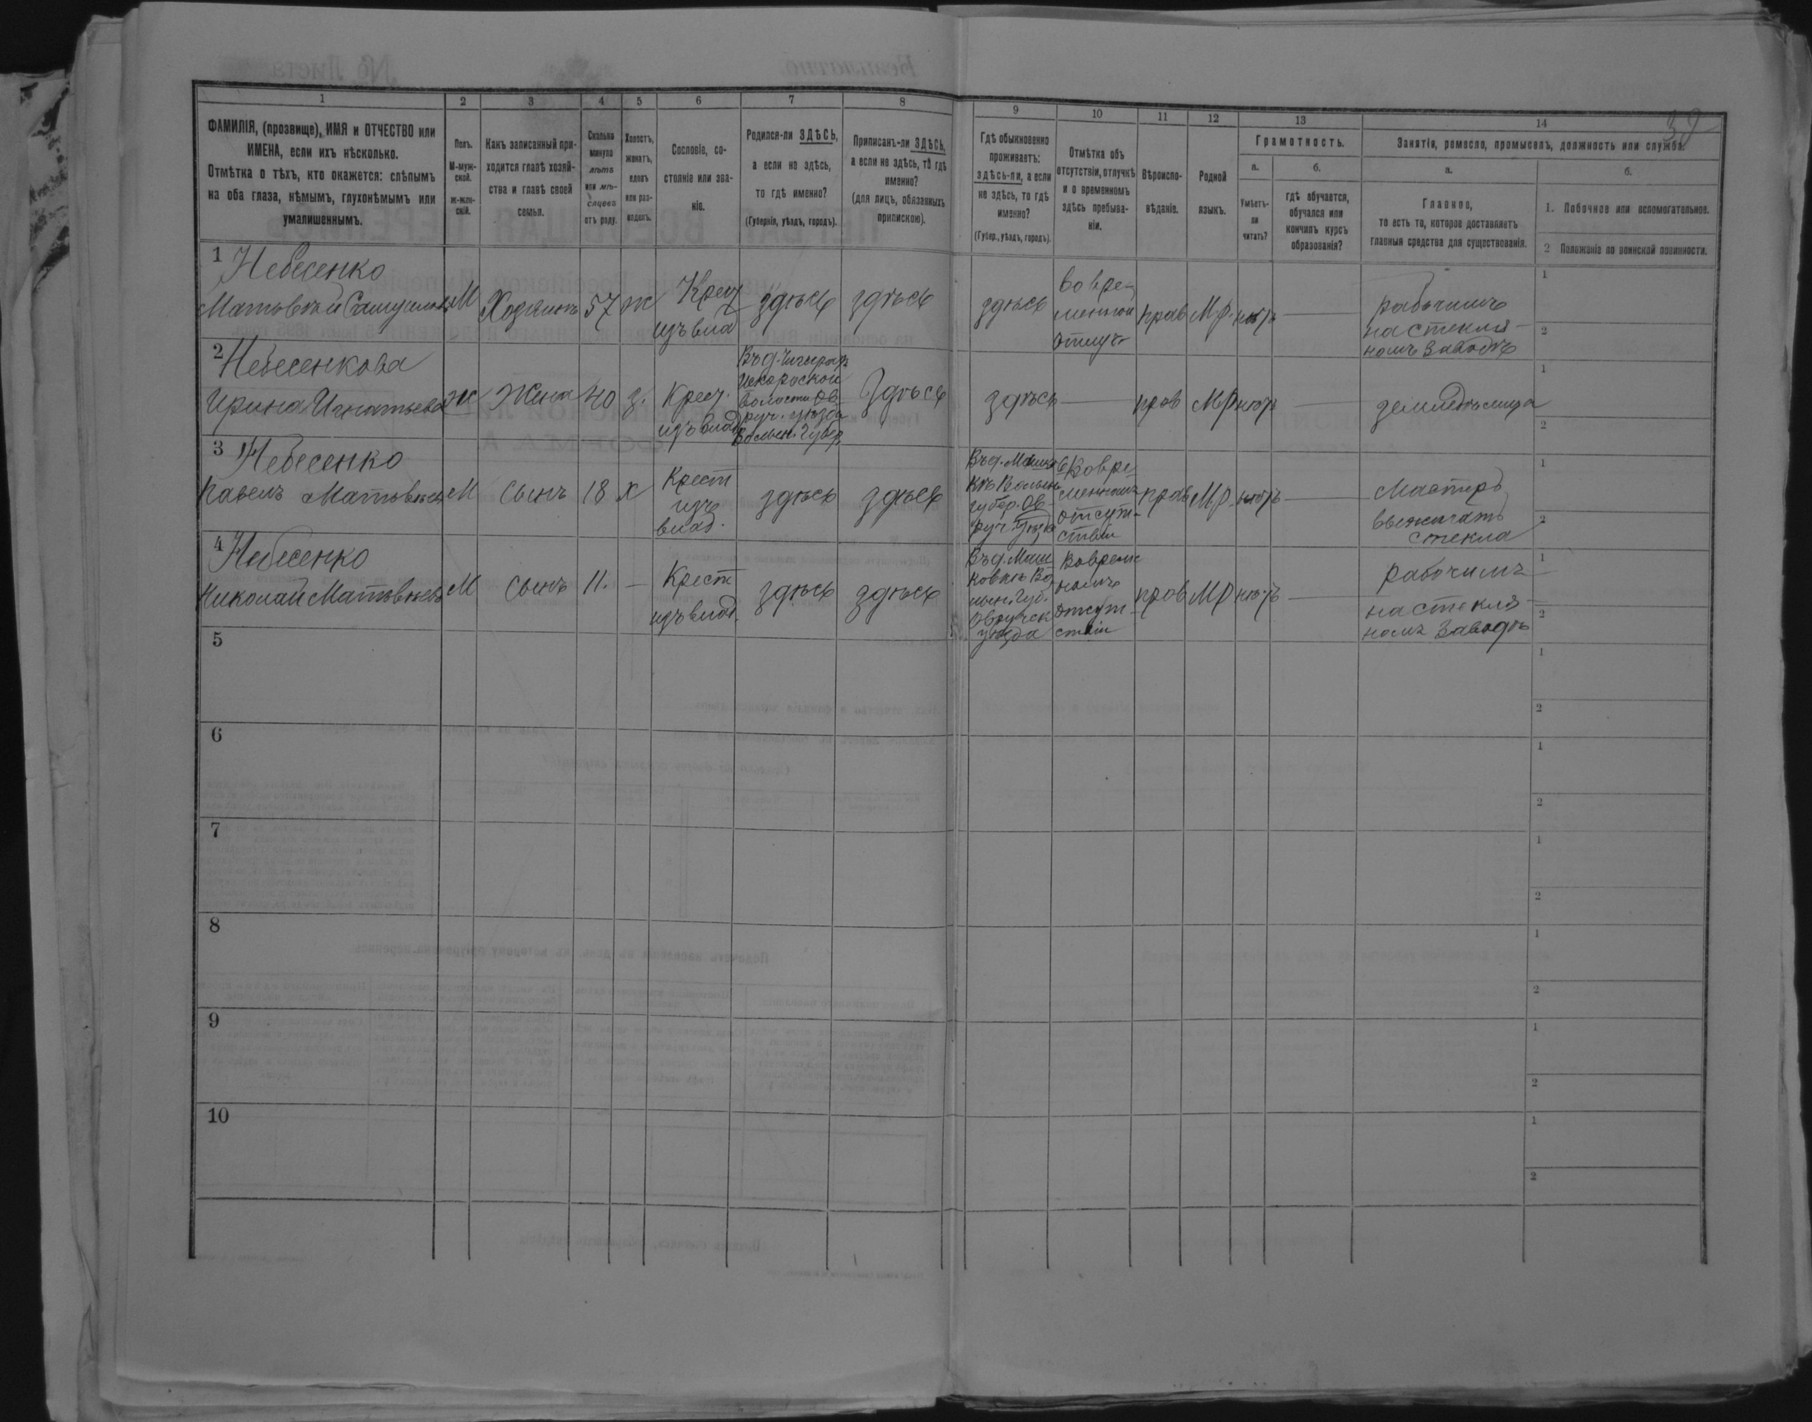 39
1 2 3 4 5 6 7 8 9 10 11 12 13 14
ФАМИЛІЯ, (прозвище), ИМЯ и ОТЧЕСТВО или
ИМЕНА, если ихъ нѣсколько.
Отмѣтка о тѣхъ, кто окажется: слѣпымъ
на оба глаза, нѣмымъ, глухонѣмымъ или
умалишеннымъ.
Полъ.
М-муж-
ской.
Ж-жен-
скій.
Какъ записанный при-
ходится главѣ хозяй-
ства и главѣ своей
семьи.
Сколько
минуло
лѣтъ
или мѣ-
сяцевъ
отъ роду.
Холостъ,
женатъ,
вдовъ
или раз-
веденъ.
Сословіе, со-
стояніе или зва-
ніе.
Родился-ли ЗДѢСЬ,
а если не здѣсь,
то гдѣ именно?
(Губернія, уѣздъ, городъ).
Приписанъ-ли ЗДѢСЬ,
а если не здѣсь, то гдѣ
именно?
(для лицъ, обязанныхъ
припискою).
Гдѣ обыкновенно
проживаетъ:
здѣсь-ли, а если
не здѣсь, то гдѣ
именно?
(Губер., уѣздъ, городъ).
Отмѣтка объ
отсутствіи, отлучкѣ
и о временномъ
здѣсь пребыва-
ніи.
Вѣроиспо-
вѣданіе.
Родной
языкъ.
Грамотность.
а.
Умѣетъ-
ли
читать?
б.
гдѣ обучается,
обучался или
кончилъ курсъ
образованія?
Занятія, ремесло, промыселъ, должность или служба.
а.
Главное,
то есть то, которое доставляетъ
главныя средства для существованія.
б.
1. Побочное или вспомогательное.
2 Положеніе по воинской повинности.
1 Небесенко
Матовей Самуиловъ М Хозяинъ 57 ж Крест изъ влад здѣсь здѣсь здѣсь
во вре-
менной
отлуч
прав М.р. нѣтъ —
рабочимъ
на стекля-
номъ заводѣ
1
2
2 Небесенкова
Ирина Игнатьева ж Жена 40 з. Крест. изъ влад
Въ д.
волости Ов-
руч. уѣзда
Волын. Губер.
Здѣсь здѣсь — прав М.р. нѣтъ — земледѣлица
1
2
3 Небесенко
Павелъ Матовѣевъ М сынъ 18 х
Крест
изъ
влад.
здѣсь здѣсь
Волын
губер. Ов
руч. уѣзд
Вовре
менномъ
отсут-
ствіи
прав М.р. нѣтъ —
Мастеръ
выжигать
стекла
1
2
4 Небесенко
Николай Матовѣевъ М сынъ 11. —
Крест
изъ влад.
здѣсь здѣсь
лын. Губ.
Овруческ
уѣзда
Вовремен
номъ
отсут-
ствіи
прав М.р. нѣтъ —
рабочимъ
на стекля-
номъ заводѣ
1
2
5
1
2
6
1
2
7
1
2
8
1
2
9
1
2
10
1
2